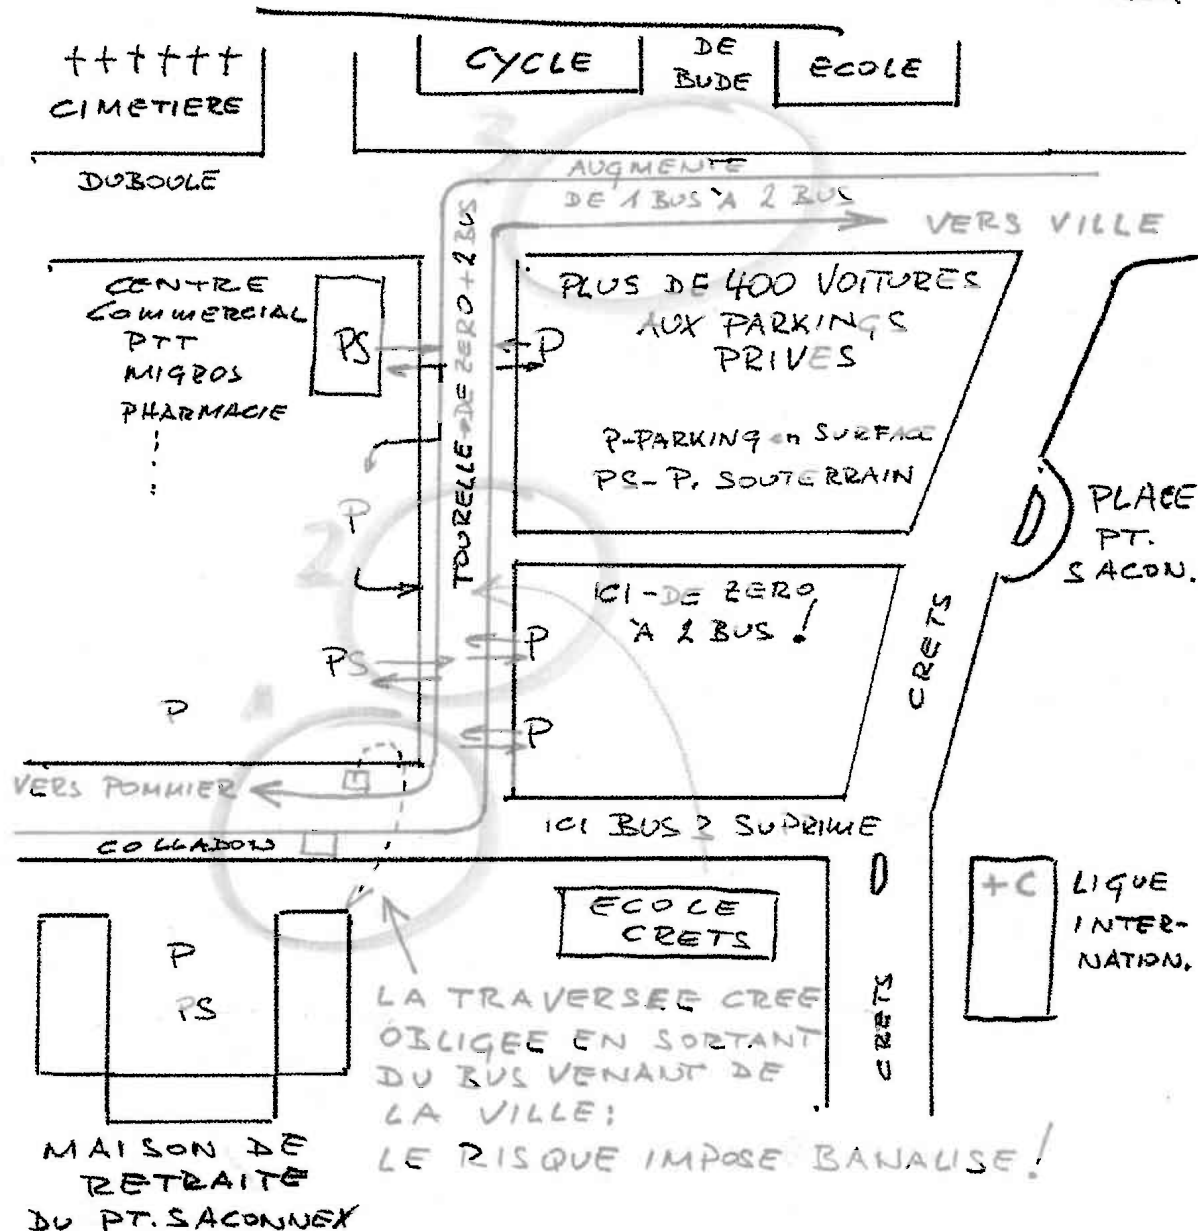 ++++++
CIMETIERE
CYCLE
DE
BUDE
ECOLE
DUBOULE
3
AUGMENTE
DE 1 BUS À 2 BUS
VERS VILLE
CENTRE
COMMERCIAL
PTT
MIGROS
PHARMACIE
PS
P
TOURELLE DE ZERO + 2 BUS
PLUS DE 400 VOITURES
AUX PARKINGS
PRIVES
P-PARKING en SURFACE
PS-P. SOUTERRAIN
PLACE
PT.
SACON.
2
P
ICI-DE ZERO
À 2 BUS!
CRETS
PS
P
P
P
1
VERS POMMIER
COLLADON
ICI BUS 2 SUPRIME
ECOLE
CRETS
+C
LIGUE
INTER-
NATION.
CRETS
P
PS
LA TRAVERSEE CREE
OBLIGEE EN SORTANT
DU BUS VENANT DE
LA VILLE:
LE RISQUE IMPOSE BANALISE!
MAISON DE
RETRAITE
DU PT. SACONNEX